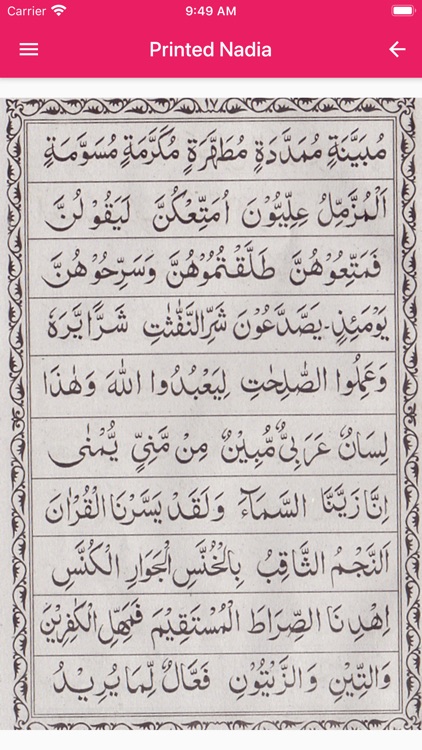 Carrier 9:49 AM
Printed Nadia
١٧
مُبَيَّنَةٍ مُمَدَّدَةٍ مُطَهَّرَةٍ مُكَرَّمَةٍ مُسَوَّمَةٍ
اَلْمُزَّمِّلُ عِلِّيُّوْنَ اُمَتِّعْكُنَّ لَيَقُوْلُنَّ
فَمَتِّعُوْهُنَّ طَلَّقْتُمُوْهُنَّ وَسَرِّحُوْهُنَّ
يَوْمَئِذٍ يَصَّدَّعُوْنَ شَرِّ النَّفّٰثٰتِ شَرًّا يَّرَهٗ
وَعَمِلُوا الصّٰلِحٰتِ لِيَعْبُدُوا اللّٰهَ وَهٰذَا
لِسَانٌ عَرَبِيٌّ مُّبِيْنٌ مِنْ مَّنِيٍّ يُّمْنٰى
اِنَّا زَيَّنَّا السَّمَآءَ وَلَقَدْ يَسَّرْنَا الْقُرْاٰنَ
اَلنَّجْمُ الثَّاقِبُ بِالْخُنَّسِ الْجَوَارِ الْكُنَّسِ
اِهْدِنَا الصِّرَاطَ الْمُسْتَقِيْمَ فَمَهِّلِ الْكٰفِرِيْنَ
وَالتِّيْنِ وَالزَّيْتُوْنِ فَعَّالٌ لِّمَا يُرِيْدُ